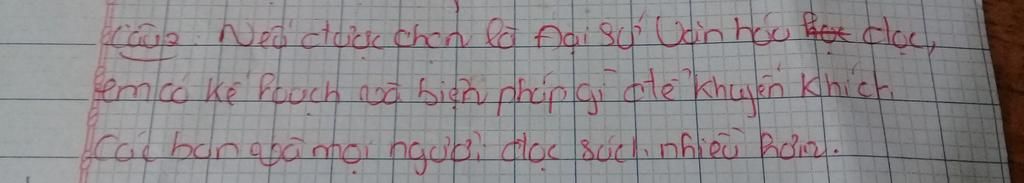 câu 2: Nếu được chọn là Đại Sứ Văn hóa đọc,
em có kế hoạch và biện pháp gì để khuyến khích
các bạn và mọi người đọc sách nhiều hơn.